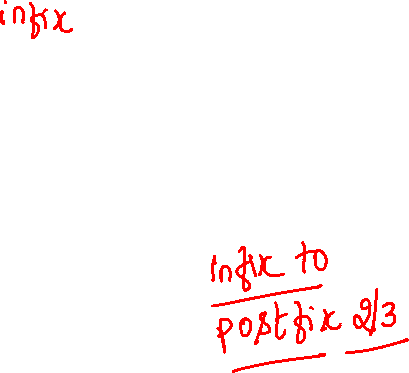 infix
infix to
postfix 2/3